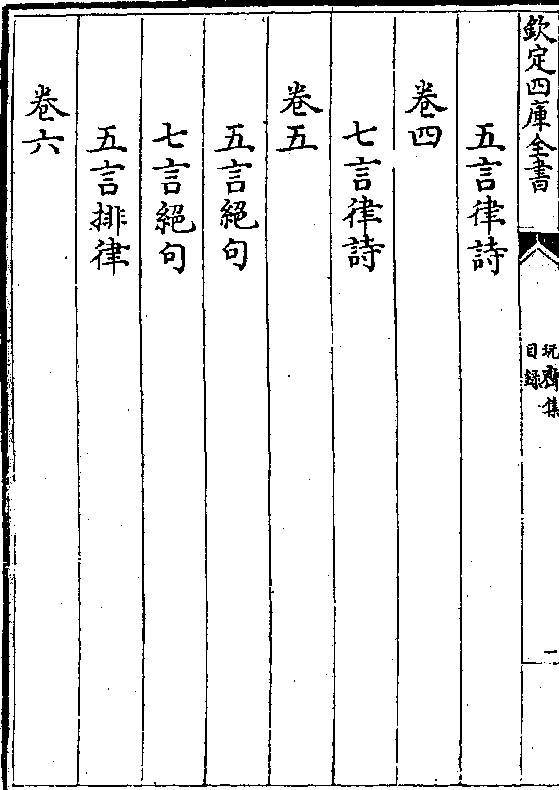 欽定四庫全書
玩齋集
目録
一
五言律詩
卷四
七言律詩
卷五
五言絕句
七言絕句
五言排律
卷六